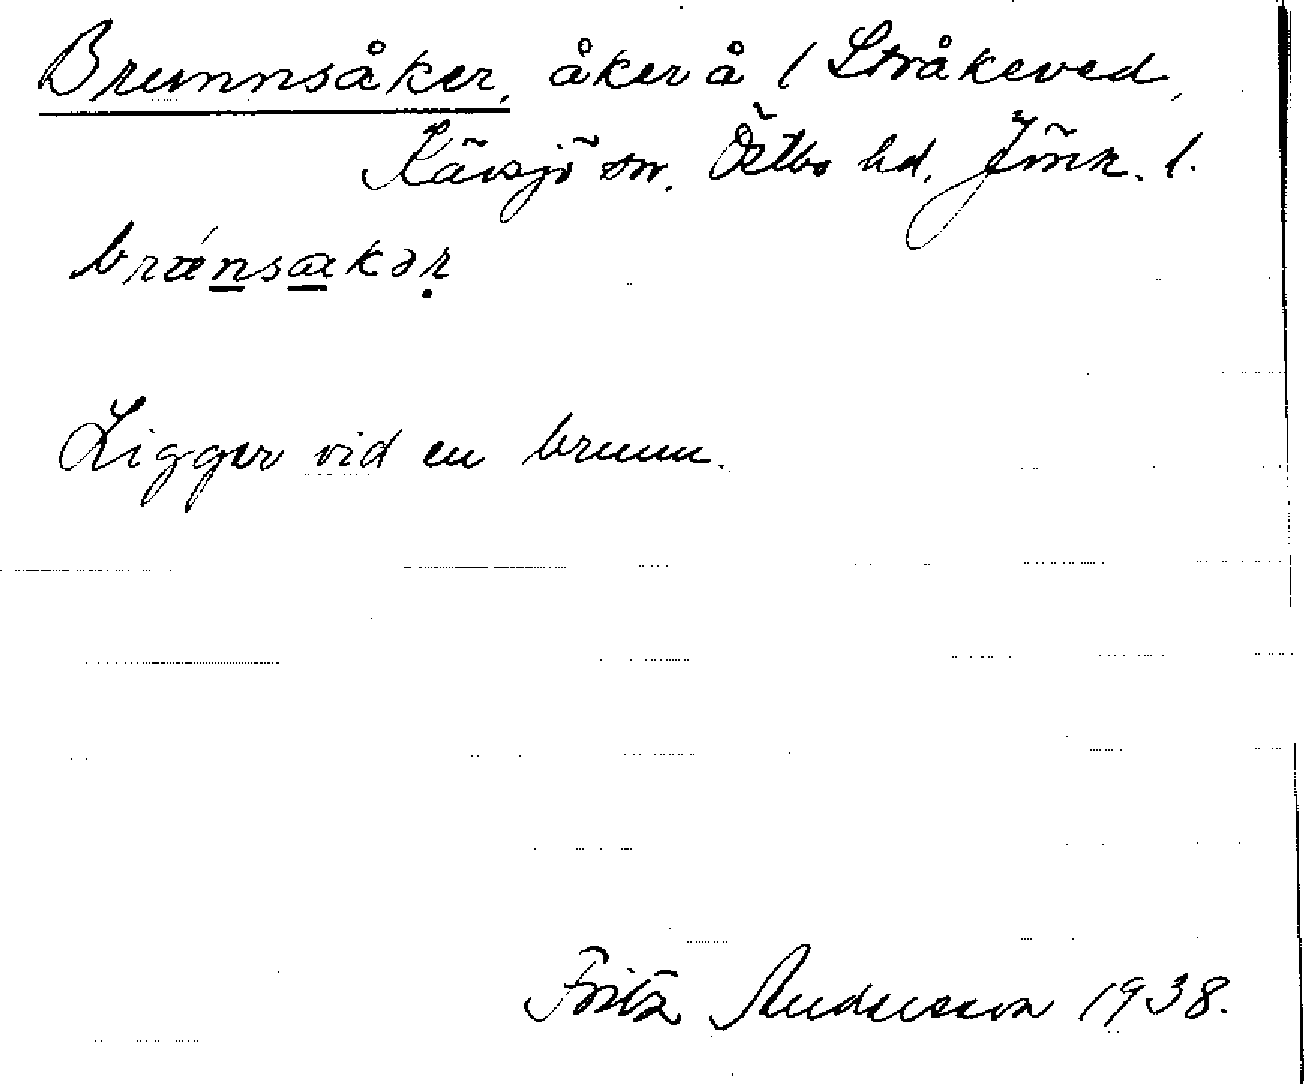 Brunnsåker, åker å 1 Stråkeved,
Kävsjö sn. Östbo hd. Jönk. l.
brǽnsakər
Ligger vid en brunn.
Fritz Andersson 1938.